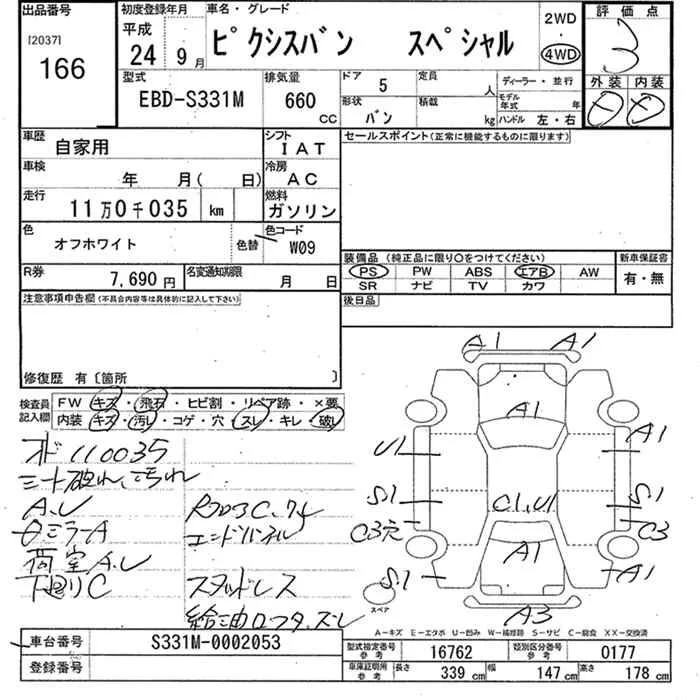 出品番号 初度登録年月 車名・グレード 評価点
[2037] 平成 2WD 3
166 24 9月 ピクシスバン スペシャル 4WD
型式 排気量 ドア 定員 ディーラー・並行 外装 内装
EBD-S331M 660 CC 5 人
形状 積載 モデル年式 年
バン kg ハンドル 左・右
車歴 自家用 シフト IAT セールスポイント(正常に機能するものに限ります)
車検 年 月( 日) 冷房 AC
走行 11万0千035 km 燃料 ガソリン
色 オフホワイト 色替 色コード W09
装備品(純正品に限り○をつけてください) 新車保証書
R券 7,690円 名変通知期限 月 日
PS PW ABS エアB AW 有・無
SR ナビ TV カワ
注意事項申告欄(不具合内容等は具体的に記入して下さい) 後日品
修復歴 有〔箇所 〕
検査員記入欄 FW キズ・飛石・ヒビ割・リペア跡・×要
内装 キズ・汚し・コゲ・穴・スレ・キレ・破し
A1 A1
A1
オド110035
U1 A1
ミート破れ、汚れ
A.U
S1 C1,U1 S1
ミラーA エンドパネル
C3穴 C3
荷室A.U
A1
下廻りC スタッドレス
S1 A1
スペア
A3
A-キズ E-エクボ U-凹み W-補修跡 S-サビ C-腐食 XX-交換済
車台番号 S331M-0002053
型式指定番号 参考 16762 類別区分番号 参考 0177
登録番号
車庫証明用 参考 長さ 339 cm 幅 147 cm 高さ 178 cm